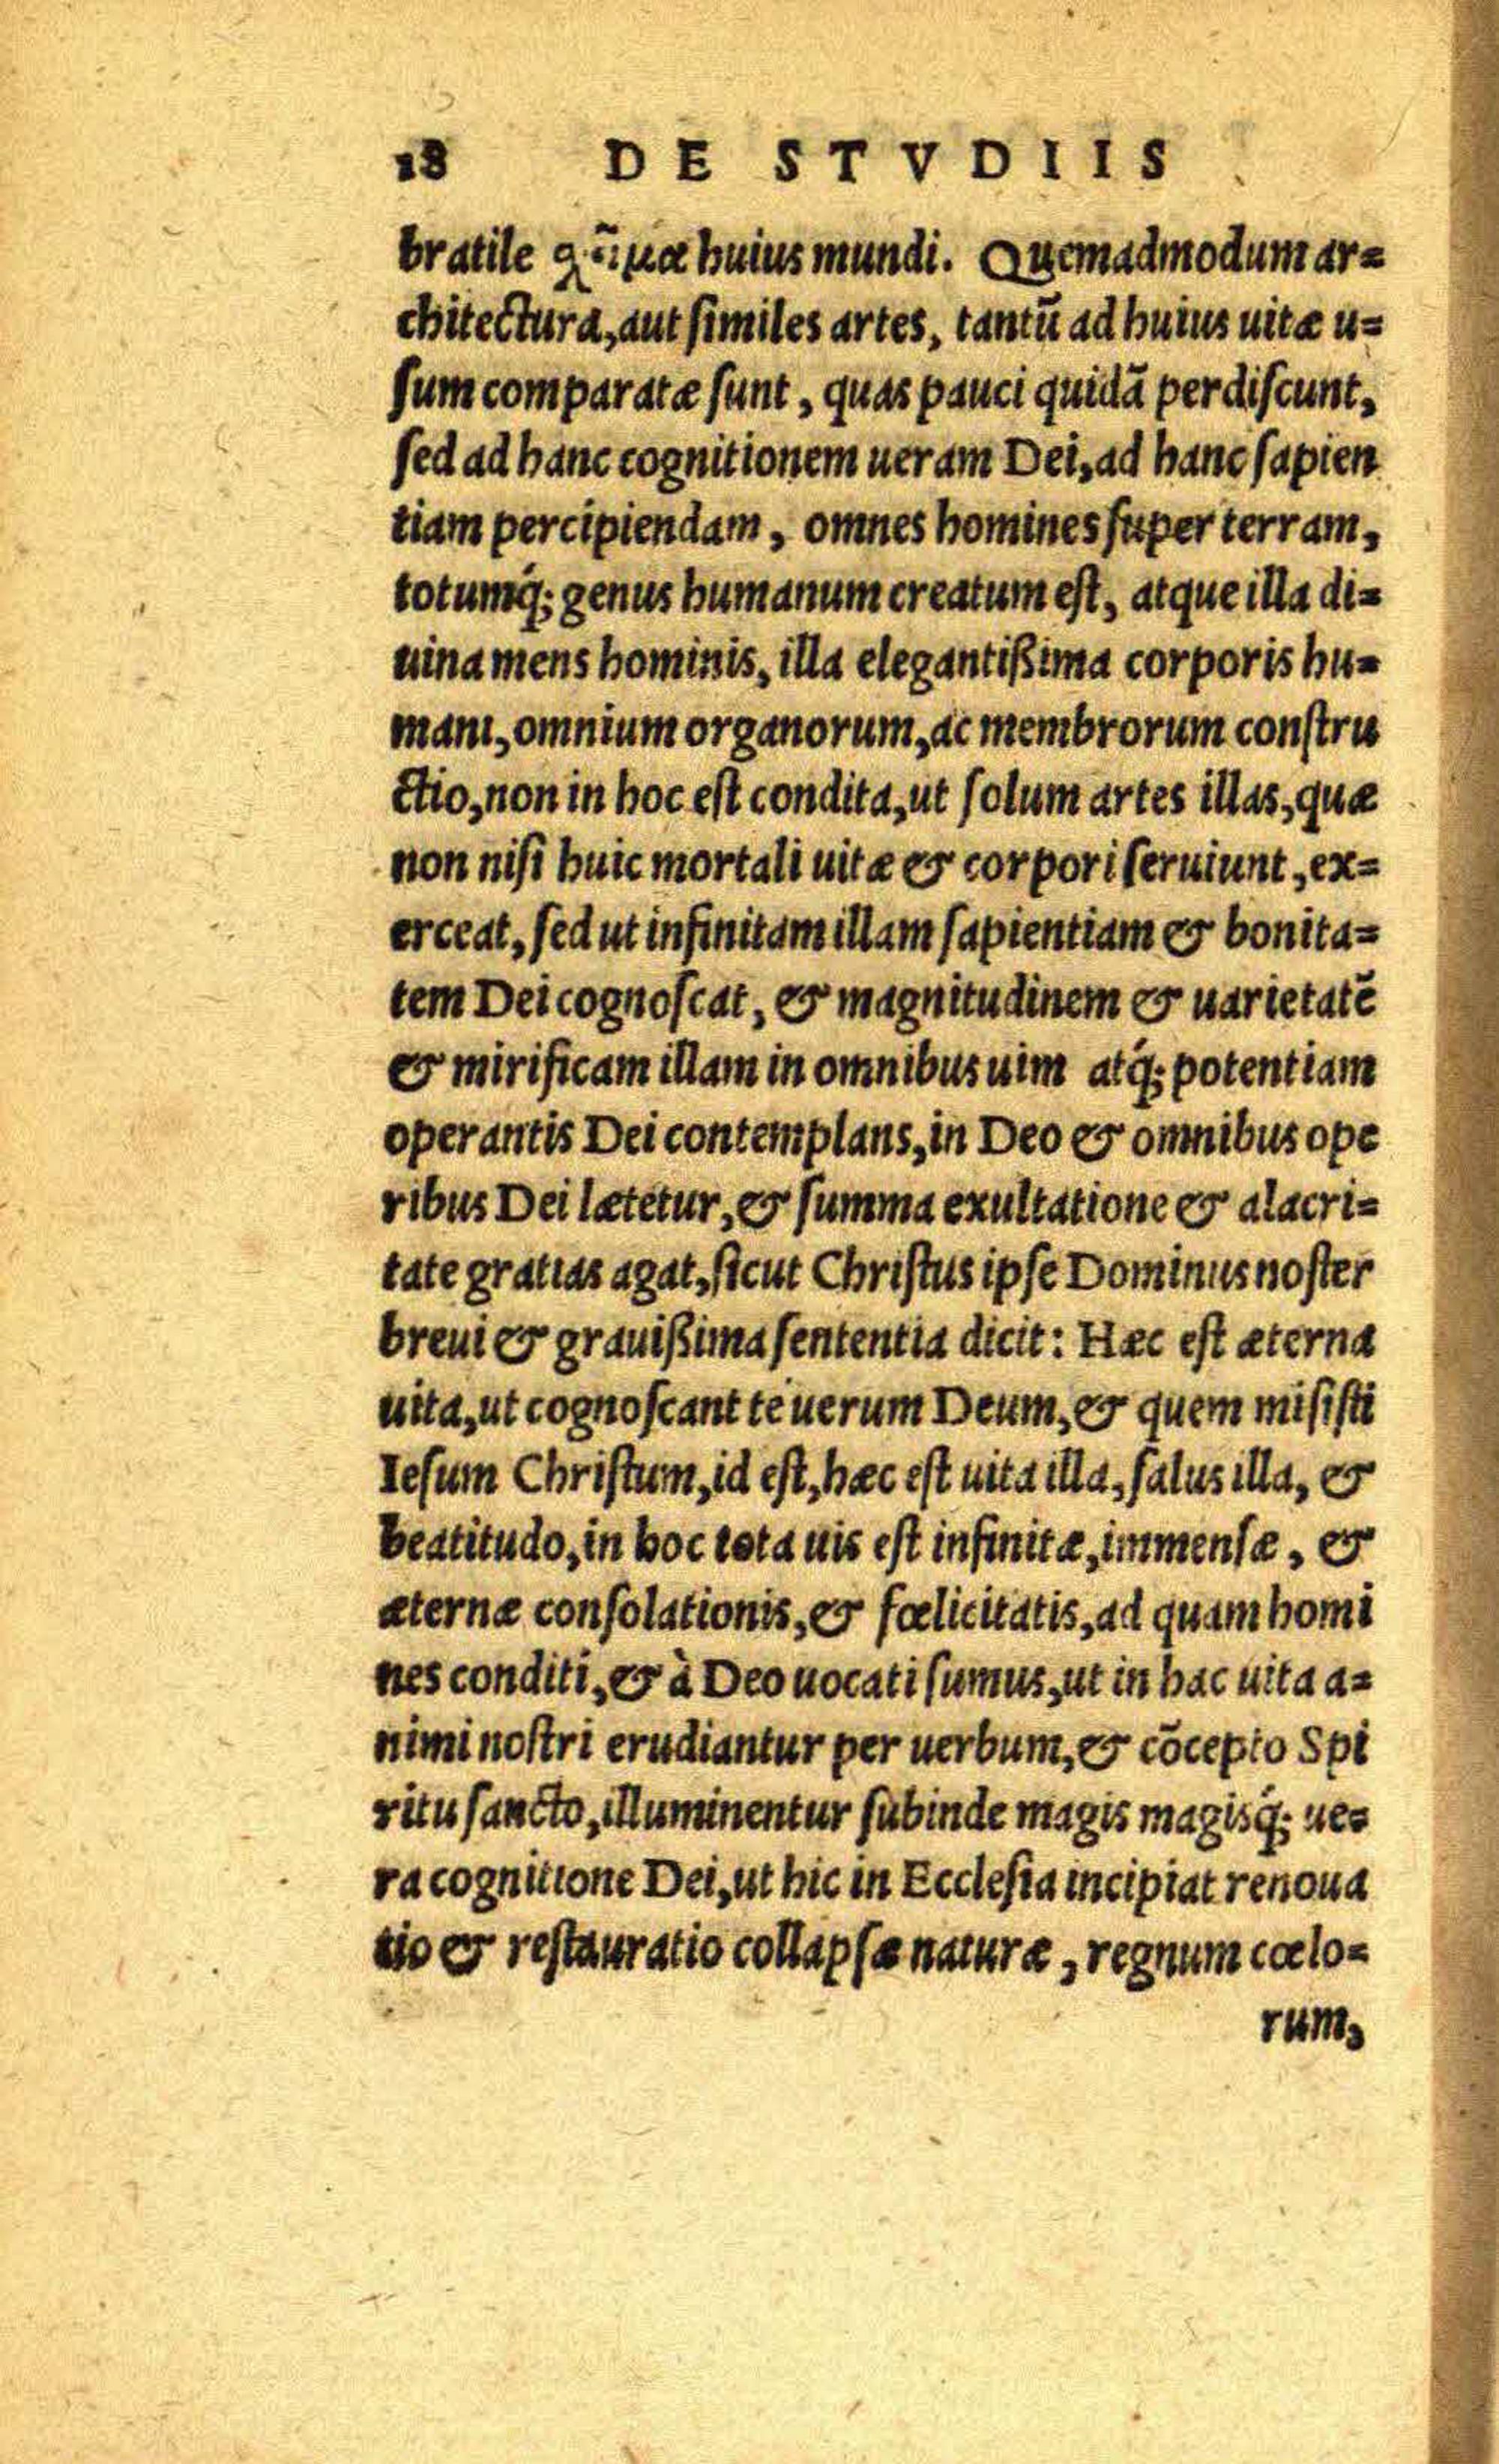 18 DE STVDIIS
bratile χῆμα huius mundi. Quemadmodum ar=
chitectura, aut ſimiles artes, tantũ ad huius uitæ u=
ſum comparatæ ſunt, quas pauci quidã perdiſcunt,
ſed ad hanc cognitionem ueram Dei, ad hanc ſapien
tiam percipiendam, omnes homines ſuper terram,
totumq́; genus humanum creatum eſt, atque illa di=
uina mens hominis, illa elegantißima corporis hu=
mani, omnium organorum, ac membrorum conſtru
ctio, non in hoc eſt condita, ut ſolum artes illas, quæ
non niſi huic mortali uitæ & corpori ſeruiunt, ex=
erceat, ſed ut infinitam illam ſapientiam & bonita=
tem Dei cognoſcat, & magnitudinem & uarietatẽ
& mirificam illam in omnibus uim atq́; potentiam
operantis Dei contemplans, in Deo & omnibus ope
ribus Dei lætetur, & ſumma exultatione & alacri=
tate gratias agat, ſicut Chriſtus ipſe Dominus noſter
breui & grauißima ſententia dicit: Hæc eſt æterna
uita, ut cognoſcant te uerum Deum, & quem miſiſti
Ieſum Chriſtum, id eſt, hæc eſt uita illa, ſalus illa, &
beatitudo, in hoc tota uis eſt infinitæ, immenſæ, &
æternæ conſolationis, & fœlicitatis, ad quam homi
nes conditi, & à Deo uocati ſumus, ut in hac uita a=
nimi noſtri erudiantur per uerbum, & cõcepto Spi
ritu ſancto, illuminentur ſubinde magis magisq́; ue=
ra cognitione Dei, ut hic in Eccleſia incipiat renoua
tio & reſtauratio collapſæ naturæ, regnum cœlo=
rum,